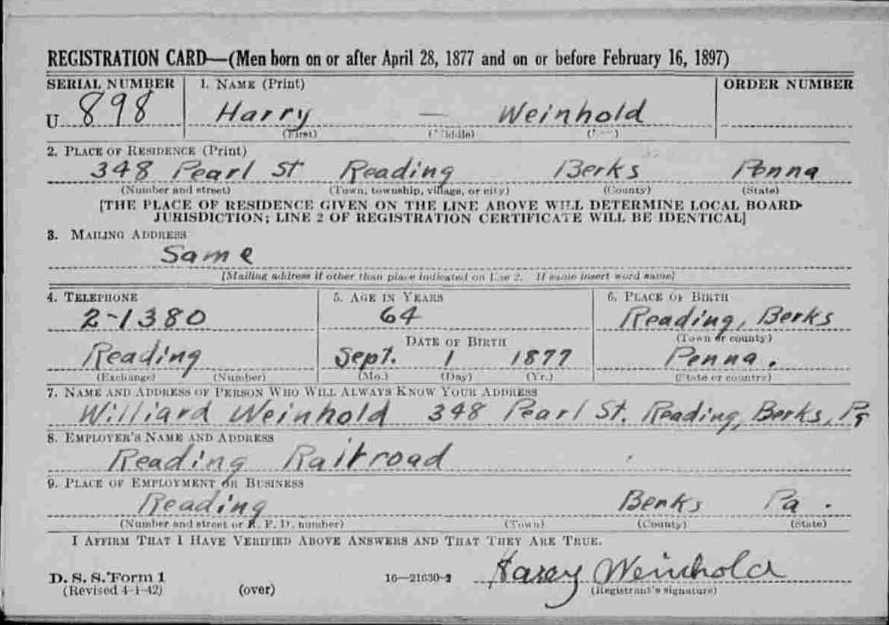 REGISTRATION CARD—(Men born on or after April 28, 1877 and on or before February 16, 1897)
SERIAL NUMBER 1. NAME (Print) ORDER NUMBER
U 898 Harry — Weinhold
(First) (Middle)
2. PLACE OF RESIDENCE (Print)
348 Pearl St Reading Berks Penna
(Number and street) (Town, township, village, or city) (County) (State)
[THE PLACE OF RESIDENCE GIVEN ON THE LINE ABOVE WILL DETERMINE LOCAL BOARD
JURISDICTION; LINE 2 OF REGISTRATION CERTIFICATE WILL BE IDENTICAL]
3. MAILING ADDRESS
Same
(Mailing address if other than place indicated on line 2. If same insert word same)
4. TELEPHONE 5. AGE IN YEARS 6. PLACE OF BIRTH
2-1380 64 Reading, Berks
DATE OF BIRTH (Town or county)
Reading Sept. 1 1877 Penna.
(Exchange) (Number) (Mo.) (Day) (Yr.) (State or country)
7. NAME AND ADDRESS OF PERSON WHO WILL ALWAYS KNOW YOUR ADDRESS
Williard Weinhold 348 Pearl St. Reading, Berks, Pa
8. EMPLOYER'S NAME AND ADDRESS
Reading Railroad
9. PLACE OF EMPLOYMENT OR BUSINESS
Reading Berks Pa.
(Number and street or R. F. D. number) (Town) (County) (State)
I AFFIRM THAT I HAVE VERIFIED ABOVE ANSWERS AND THAT THEY ARE TRUE.
D. S. S. Form 1 16—21630-2 Harry Weinhold
(Revised 4-1-42) (over) (Registrant's signature)